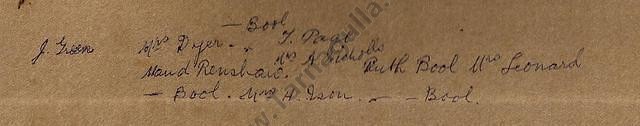 — Bool
J. Green Mrs Dyer. " T. Page
Mrs A Nicholls
Maud Renshaw. Ruth Bool Mrs Leonard
— Bool. Mrs A. Ison. — — Bool.